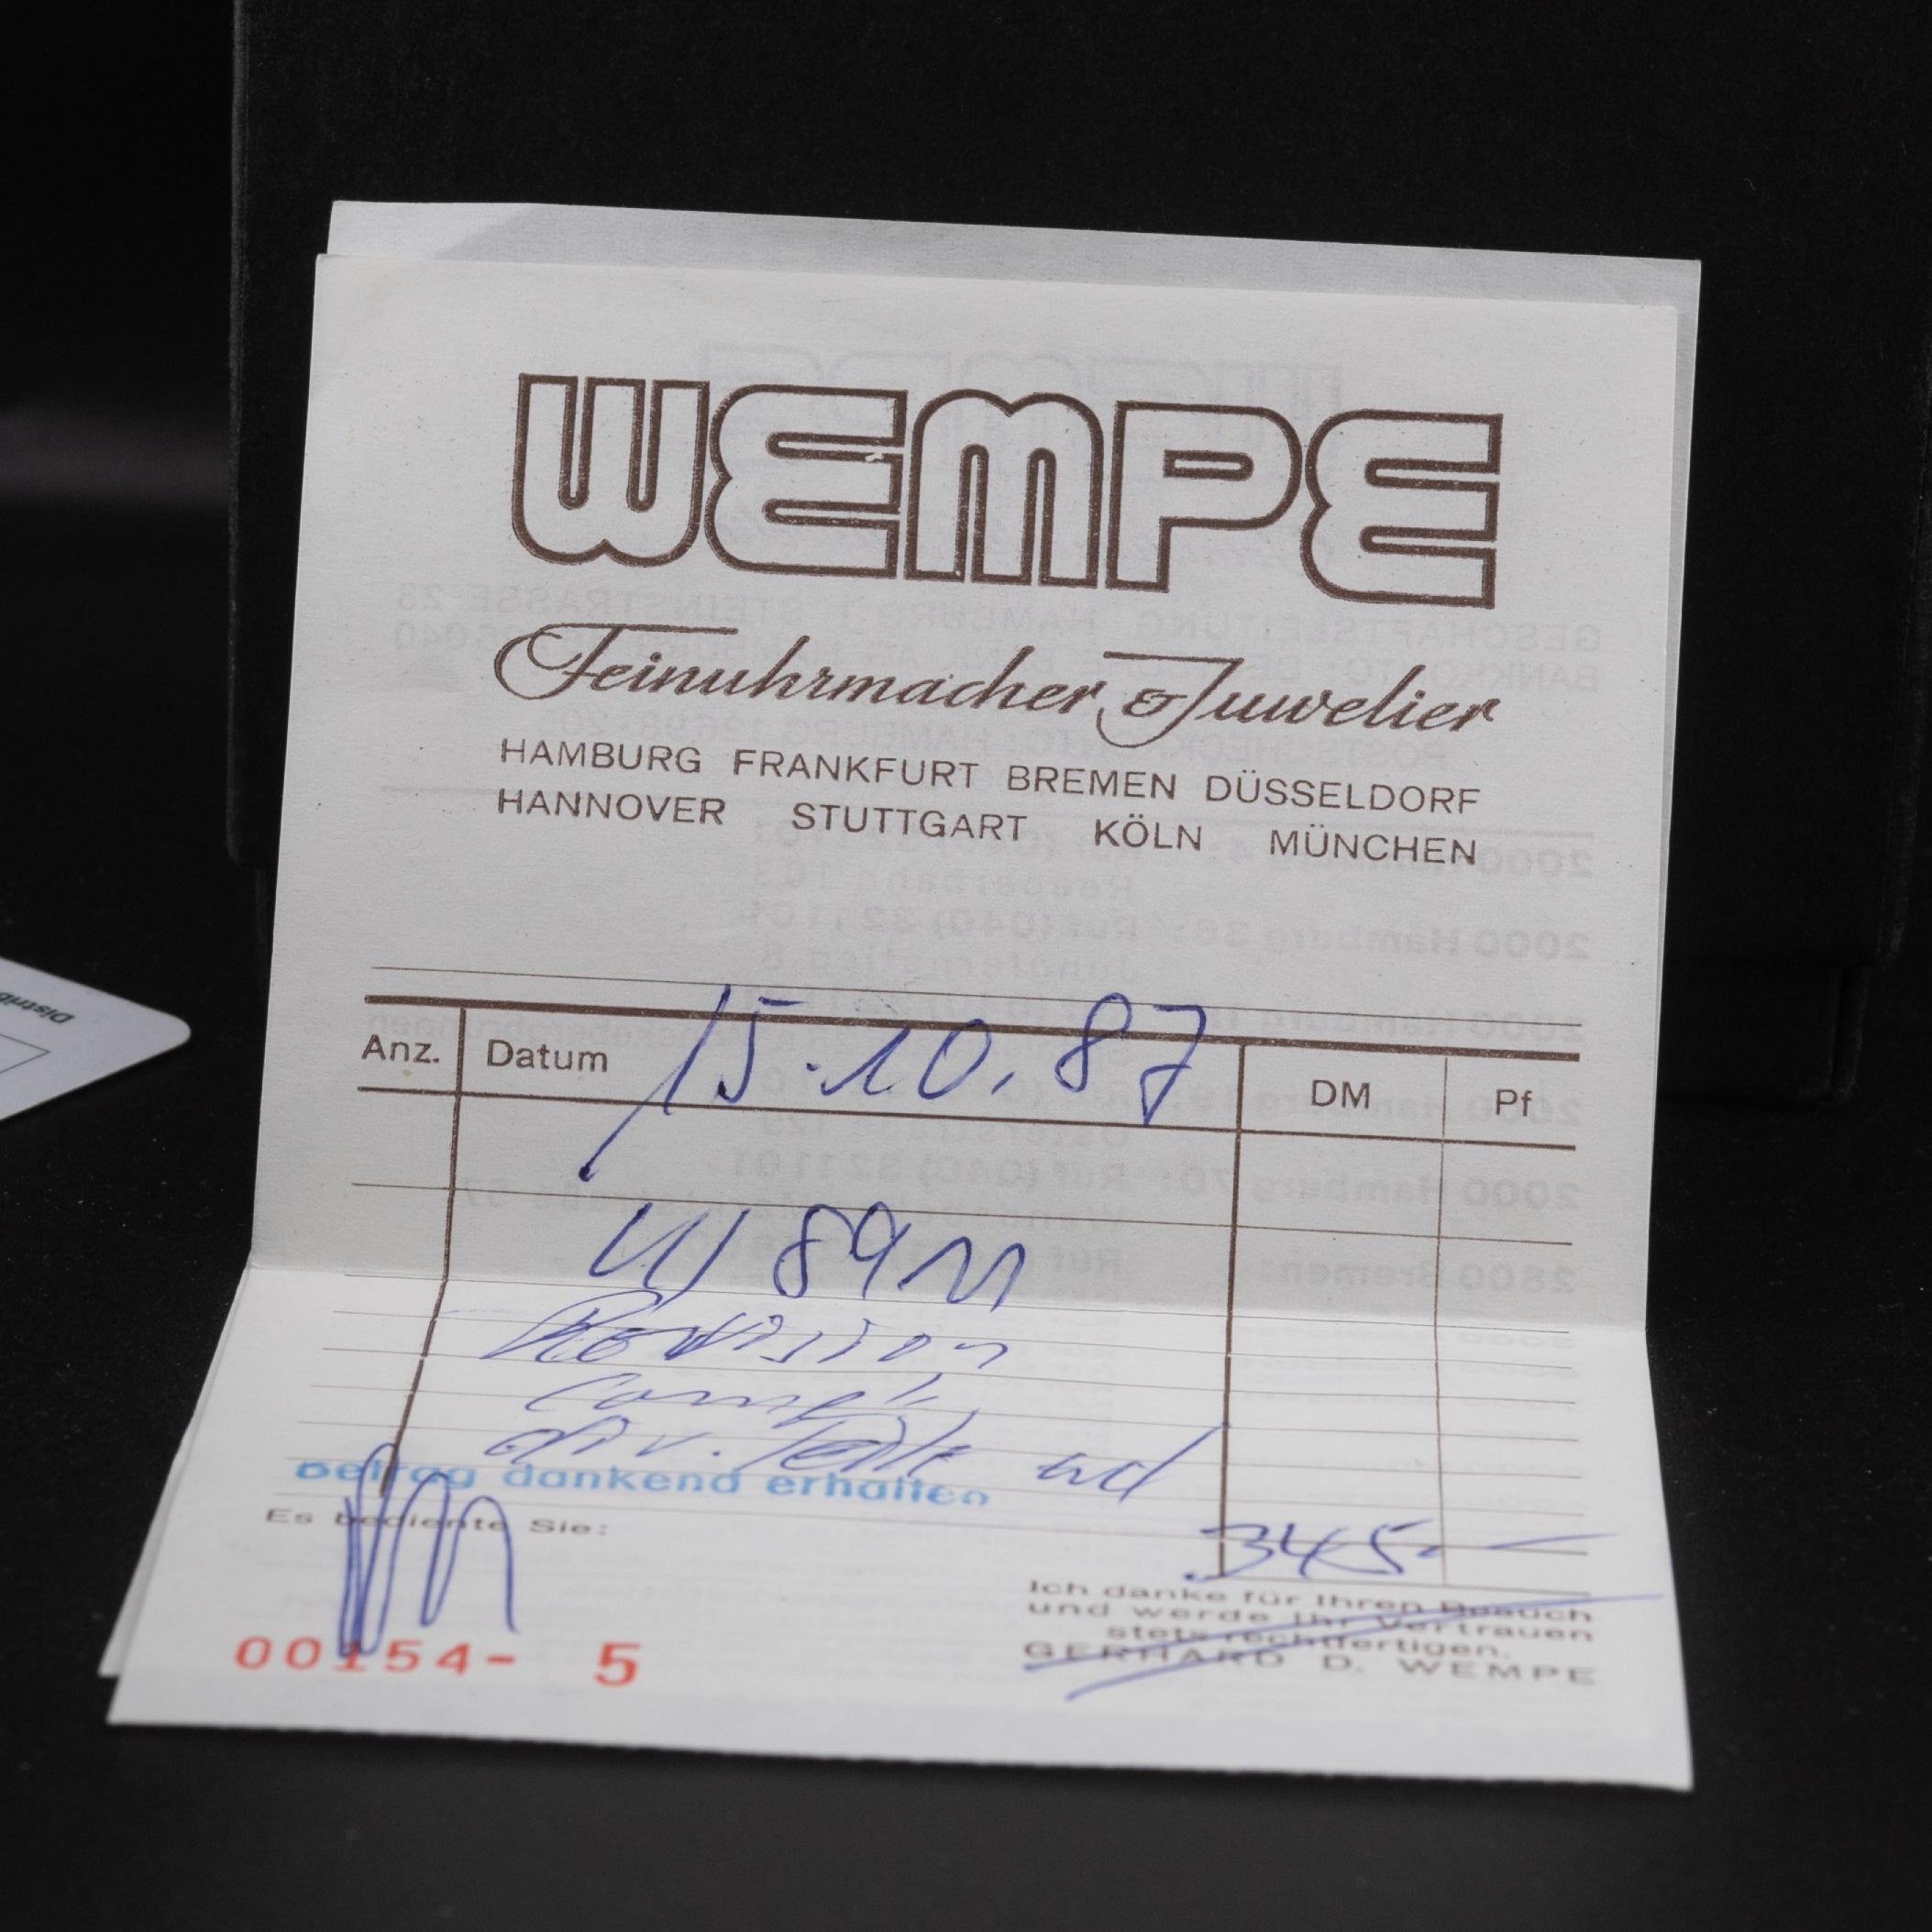 WEMPE
Feinuhrmacher & Juwelier
HAMBURG FRANKFURT BREMEN DÜSSELDORF
HANNOVER STUTTGART KÖLN MÜNCHEN
Anz. Datum 15.10.87 DM Pf
W 8911
Revision
compl.
div. Teile
Betrag dankend erhalten
Es bediente Sie:
345.-
Ich danke für Ihren Besuch
und werde Ihr Vertrauen
stets rechtfertigen.
GERHARD D. WEMPE
00154- 5